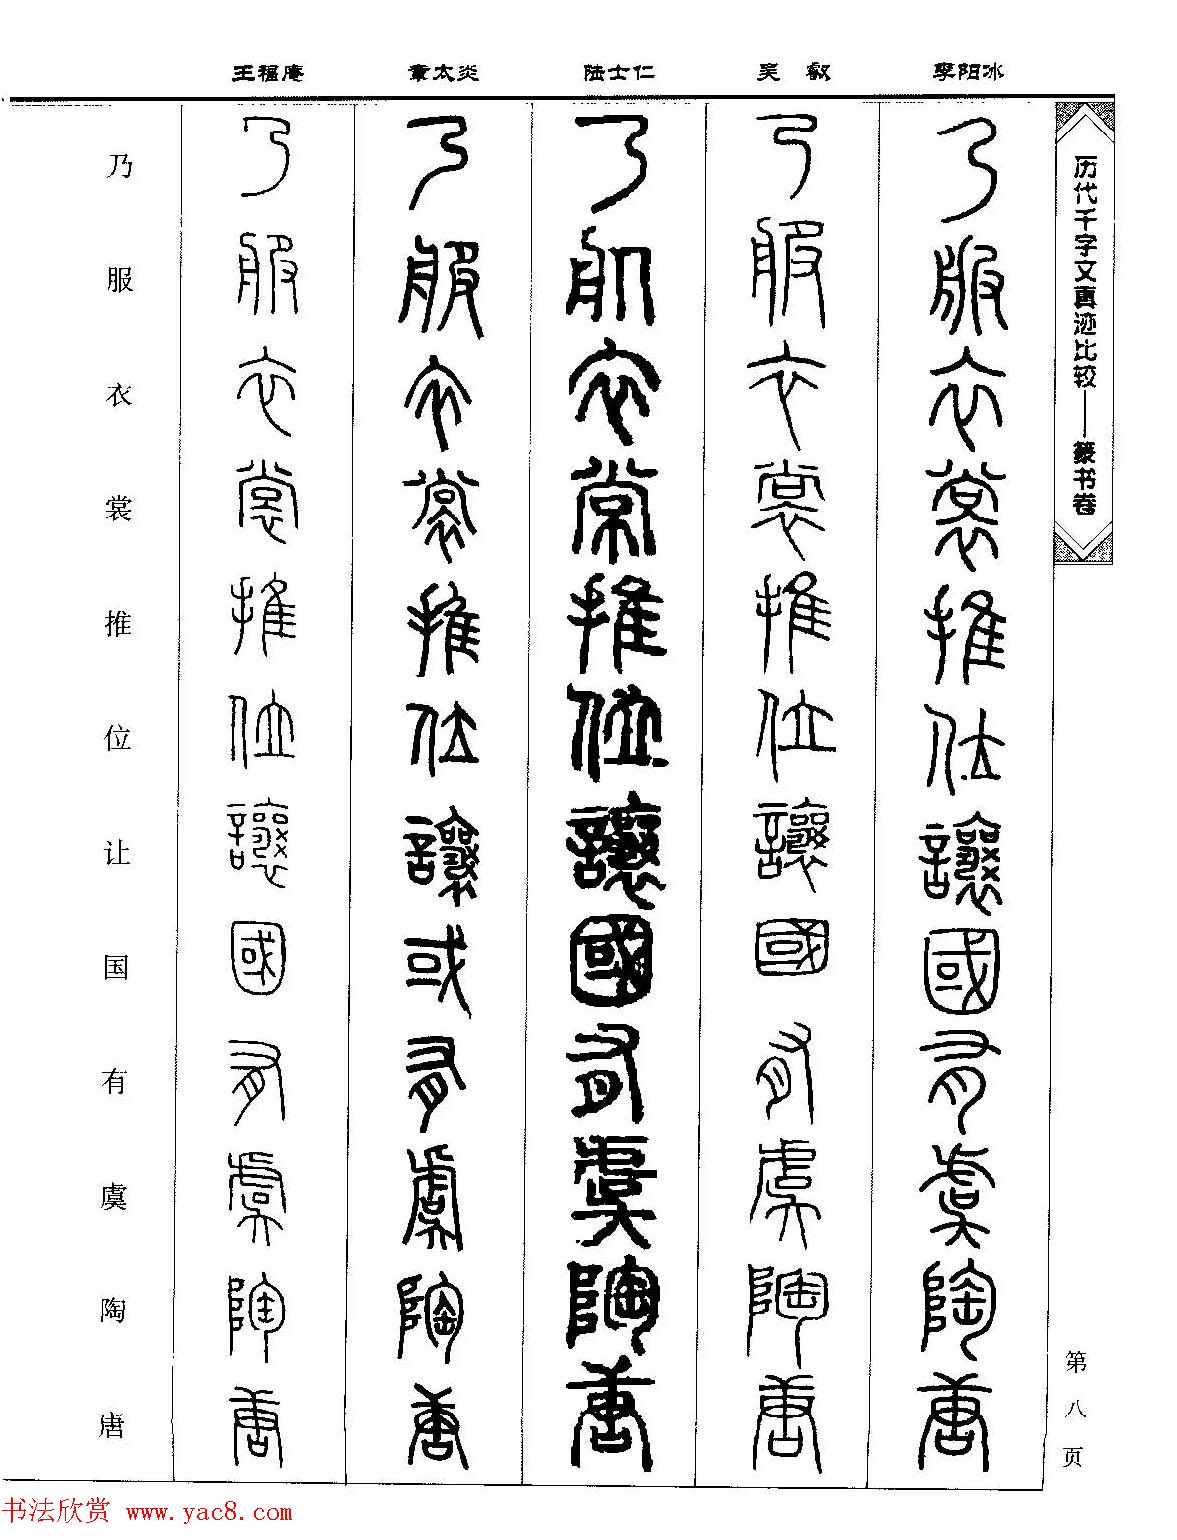 王福庵 章太炎 陆士仁 吴 叡 李阳冰
历代千字文真迹比较——篆书卷
乃服衣裳推位让国有虞陶唐
乃服衣裳推位讓國有虞陶唐
乃服衣裳推位讓國有虞陶唐
乃服衣常推位讓國有虞陶唐
乃服衣裳推位讓或有虞陶唐
乃服衣裳推位讓國有虞陶唐
第八页
书法欣赏 www.yac8.com